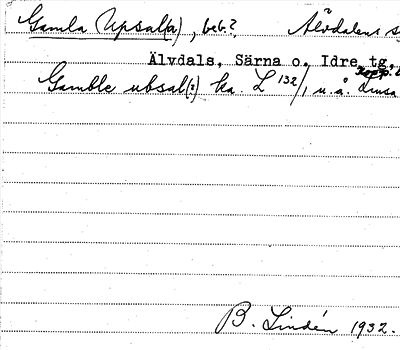 Gamla Upsal(a), beb.? Älvdalens s
Älvdals, Särna o. Idre tg,
Kopp. l
Gamble ubsal(:) ka. L 132/1 u.å. Lmsa
B. Lindén 1932.